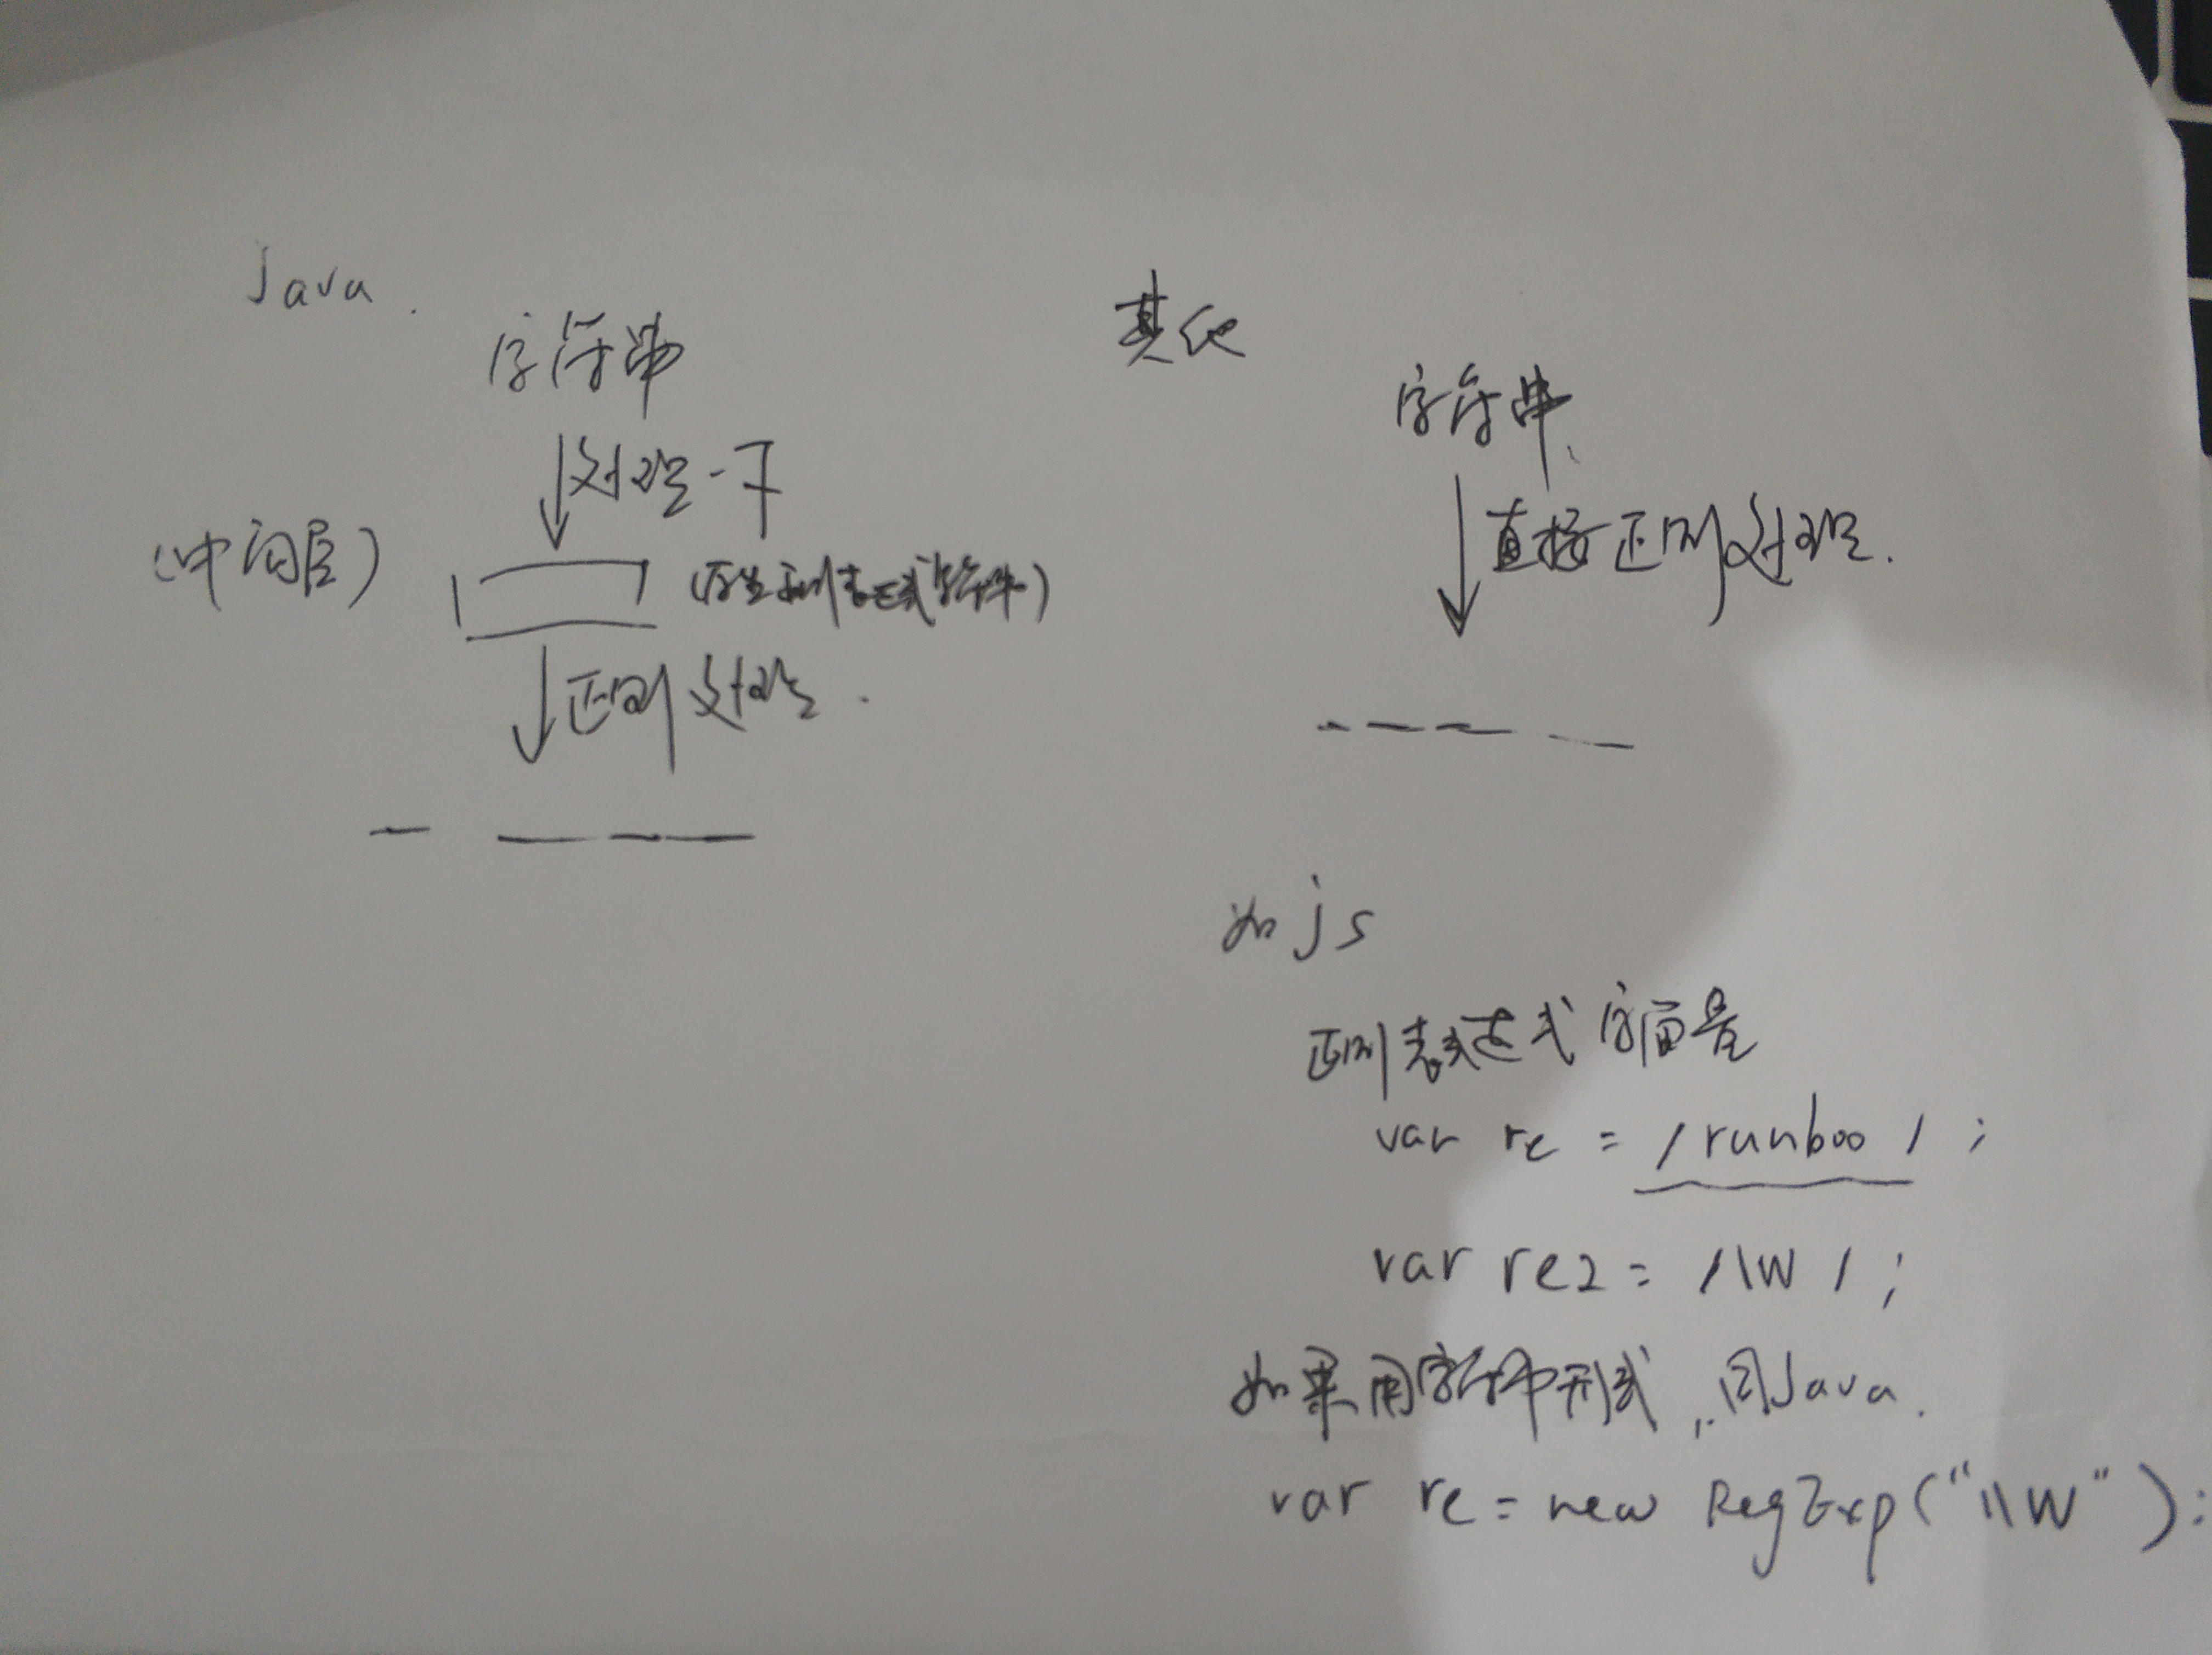 Java.
字符串
处理一下
(中间层)
(正则表达式结构)
正则处理.
其他
字符串
直接正则处理.
如 js
正则表达式 字面量
var re = /runboo/;
var re2 = /\W/;
如果用字符串形式, 同Java.
var re = new RegExp("\\W");